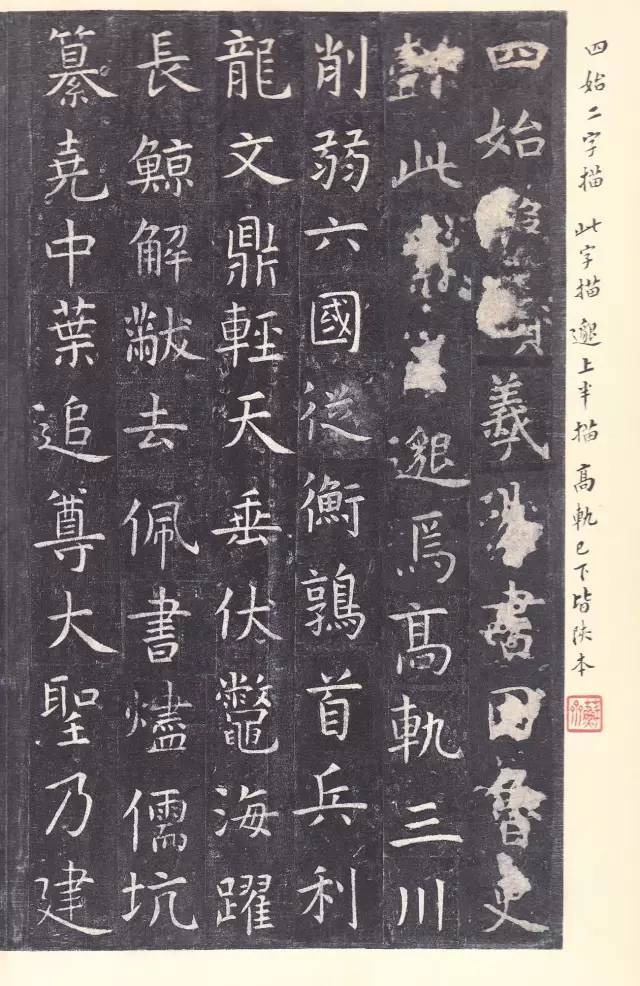 四始二字描 此字描 邈上半描 高軌已下皆陝本
四始復贊羲易書因魯史
懿此素王邈焉高軌三川
削弱六國從衡鶉首兵利
龍文鼎輕天垂伏鼈海躍
長鯨解黻去佩書燼儒坑
纂堯中葉追尊大聖乃建